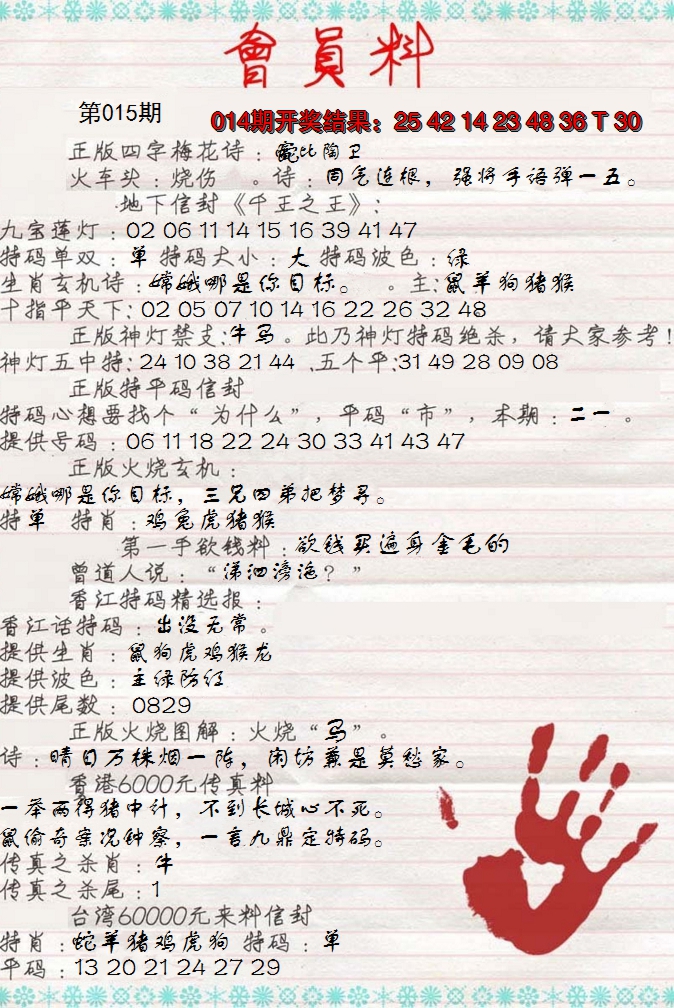 會員料
第015期
014期开奖结果：25 42 14 23 48 36 T 30
正版四字梅花诗：管比陶卫
火车头：烧伤 。诗：同气连根，强将手语弹一五。
地下信封《千王之王》：
九宝莲灯：02 06 11 14 15 16 39 41 47
特码单双：单 特码大小：大 特码波色：绿
生肖玄机诗：嫦娥哪是你目标。 。主：鼠羊狗猪猴
十指平天下：02 05 07 10 14 16 22 26 32 48
正版神灯禁支：牛马。此乃神灯特码绝杀，请大家参考！
神灯五中特：24 10 38 21 44 .五个平：31 49 28 09 08
正版特平码信封
特码心想要找个“为什么”，平码“市”，本期：二一 。
提供号码：06 11 18 22 24 30 33 41 43 47
正版火烧玄机：
嫦娥哪是你目标，三兄四弟把梦寻。
特单 特肖：鸡兔虎猪猴
第一手欲钱料：欲钱买遍身金毛的
曾道人说：“涕泗滂沱？”
香江特码精选报：
香江话特码：出没无常。
提供生肖：鼠狗虎鸡猴龙
提供波色：主绿防红
提供尾数：0829
正版火烧图解：火烧“马”。
诗：晴日万株烟一阵，闲坊兼是莫愁家。
香港6000元传真料
一举两得猪中计，不到长城心不死。
鼠偷奇案况钟察，一言九鼎定特码。
传真之杀肖：牛
传真之杀尾：1
台湾60000元来料信封
特肖：蛇羊猪鸡虎狗 特码：单
平码：13 20 21 24 27 29